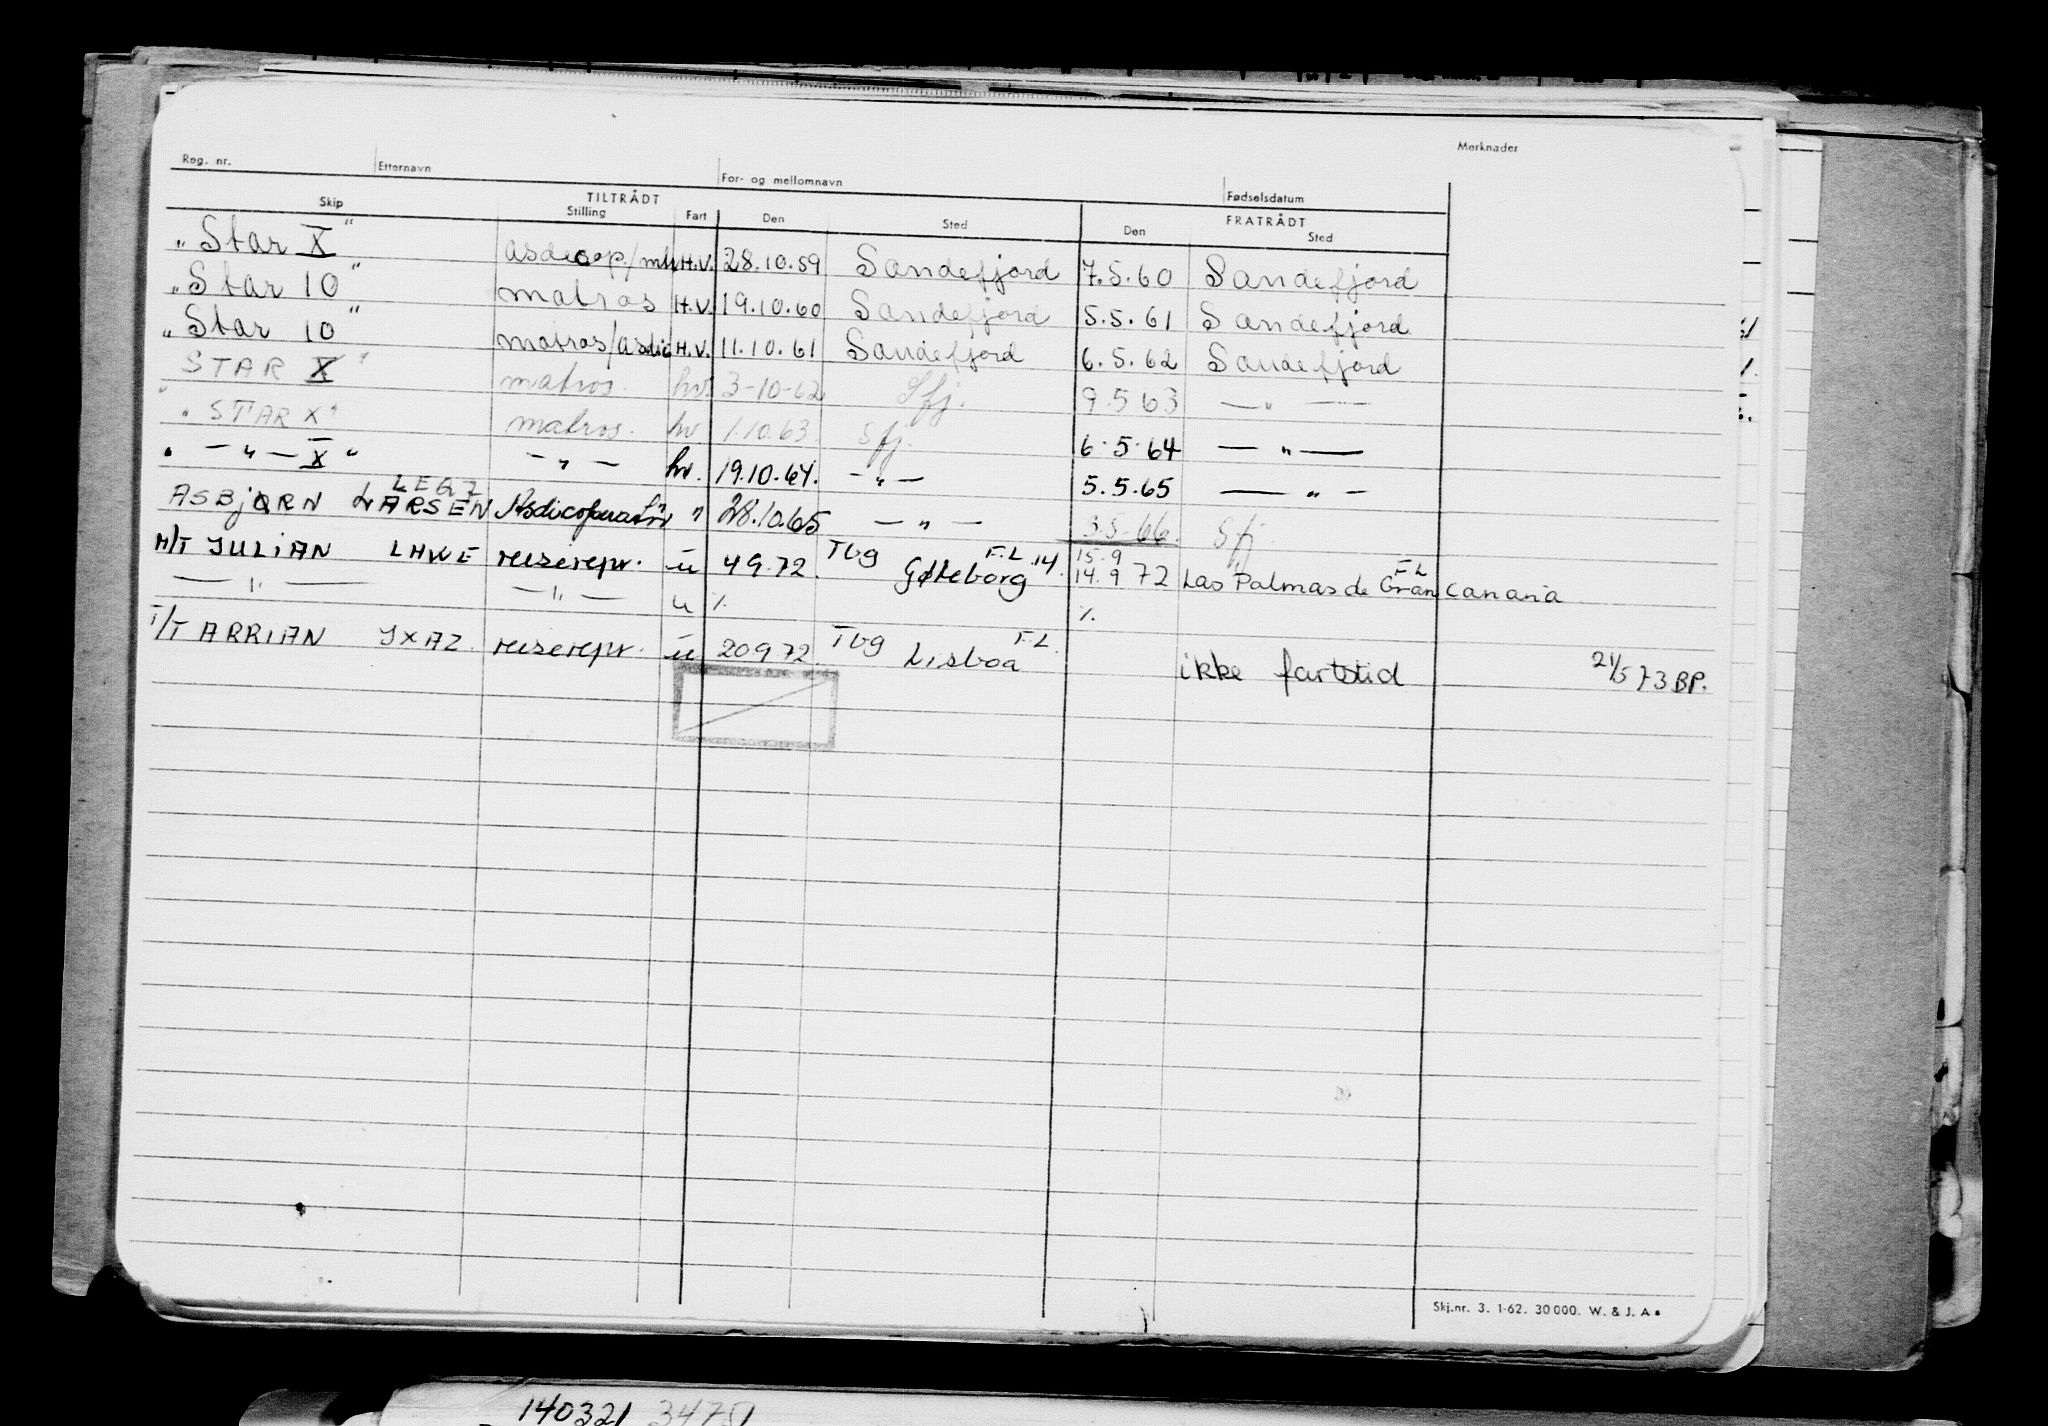 Reg. nr. Etternavn For- og mellomnavn Fødselsdatum Merknader
TILTRÅDT FRATRÅDT
Skip Stilling Fart Den Sted Den Sted
"Star X" H.V. 28.10.59 Sandefjord 7.5.60 Sandefjord
"Star 10" matros H.V. 19.10.60 Sandefjord 5.5.61 Sandefjord
"Star 10" matros/asdic H.V. 11.10.61 Sandefjord 6.5.62 Sandefjord
"STAR X" matros. hv. 3-10-62 Sfj. 9.5 63 — " —
"STAR X" matros. hv 1.10.63. Sfj. 6.5.64 — " —
" — " — X " — " — hv. 19.10.64. — " — 5.5.65 — " —
ASBJØRN LARSEN LEGZ Asdicoperatør " 28.10.65 — " — 3.5.66. Sfj
M/T JULIAN LHWE reiserepr. u 4 9.72. Tbg Gøteborg F.L .14. 15.9 14.9 72 Las Palmas de Gran Canaria F L
— " — — " — u % %
T/T ARRIAN JXAZ. reiserepr. u 20 9 72. Tbg Lisboa F.L. ikke fartstid 21/5 73 BP.
Skj.nr. 3. 1-62. 30 000. W. & J. A s
140321 34751